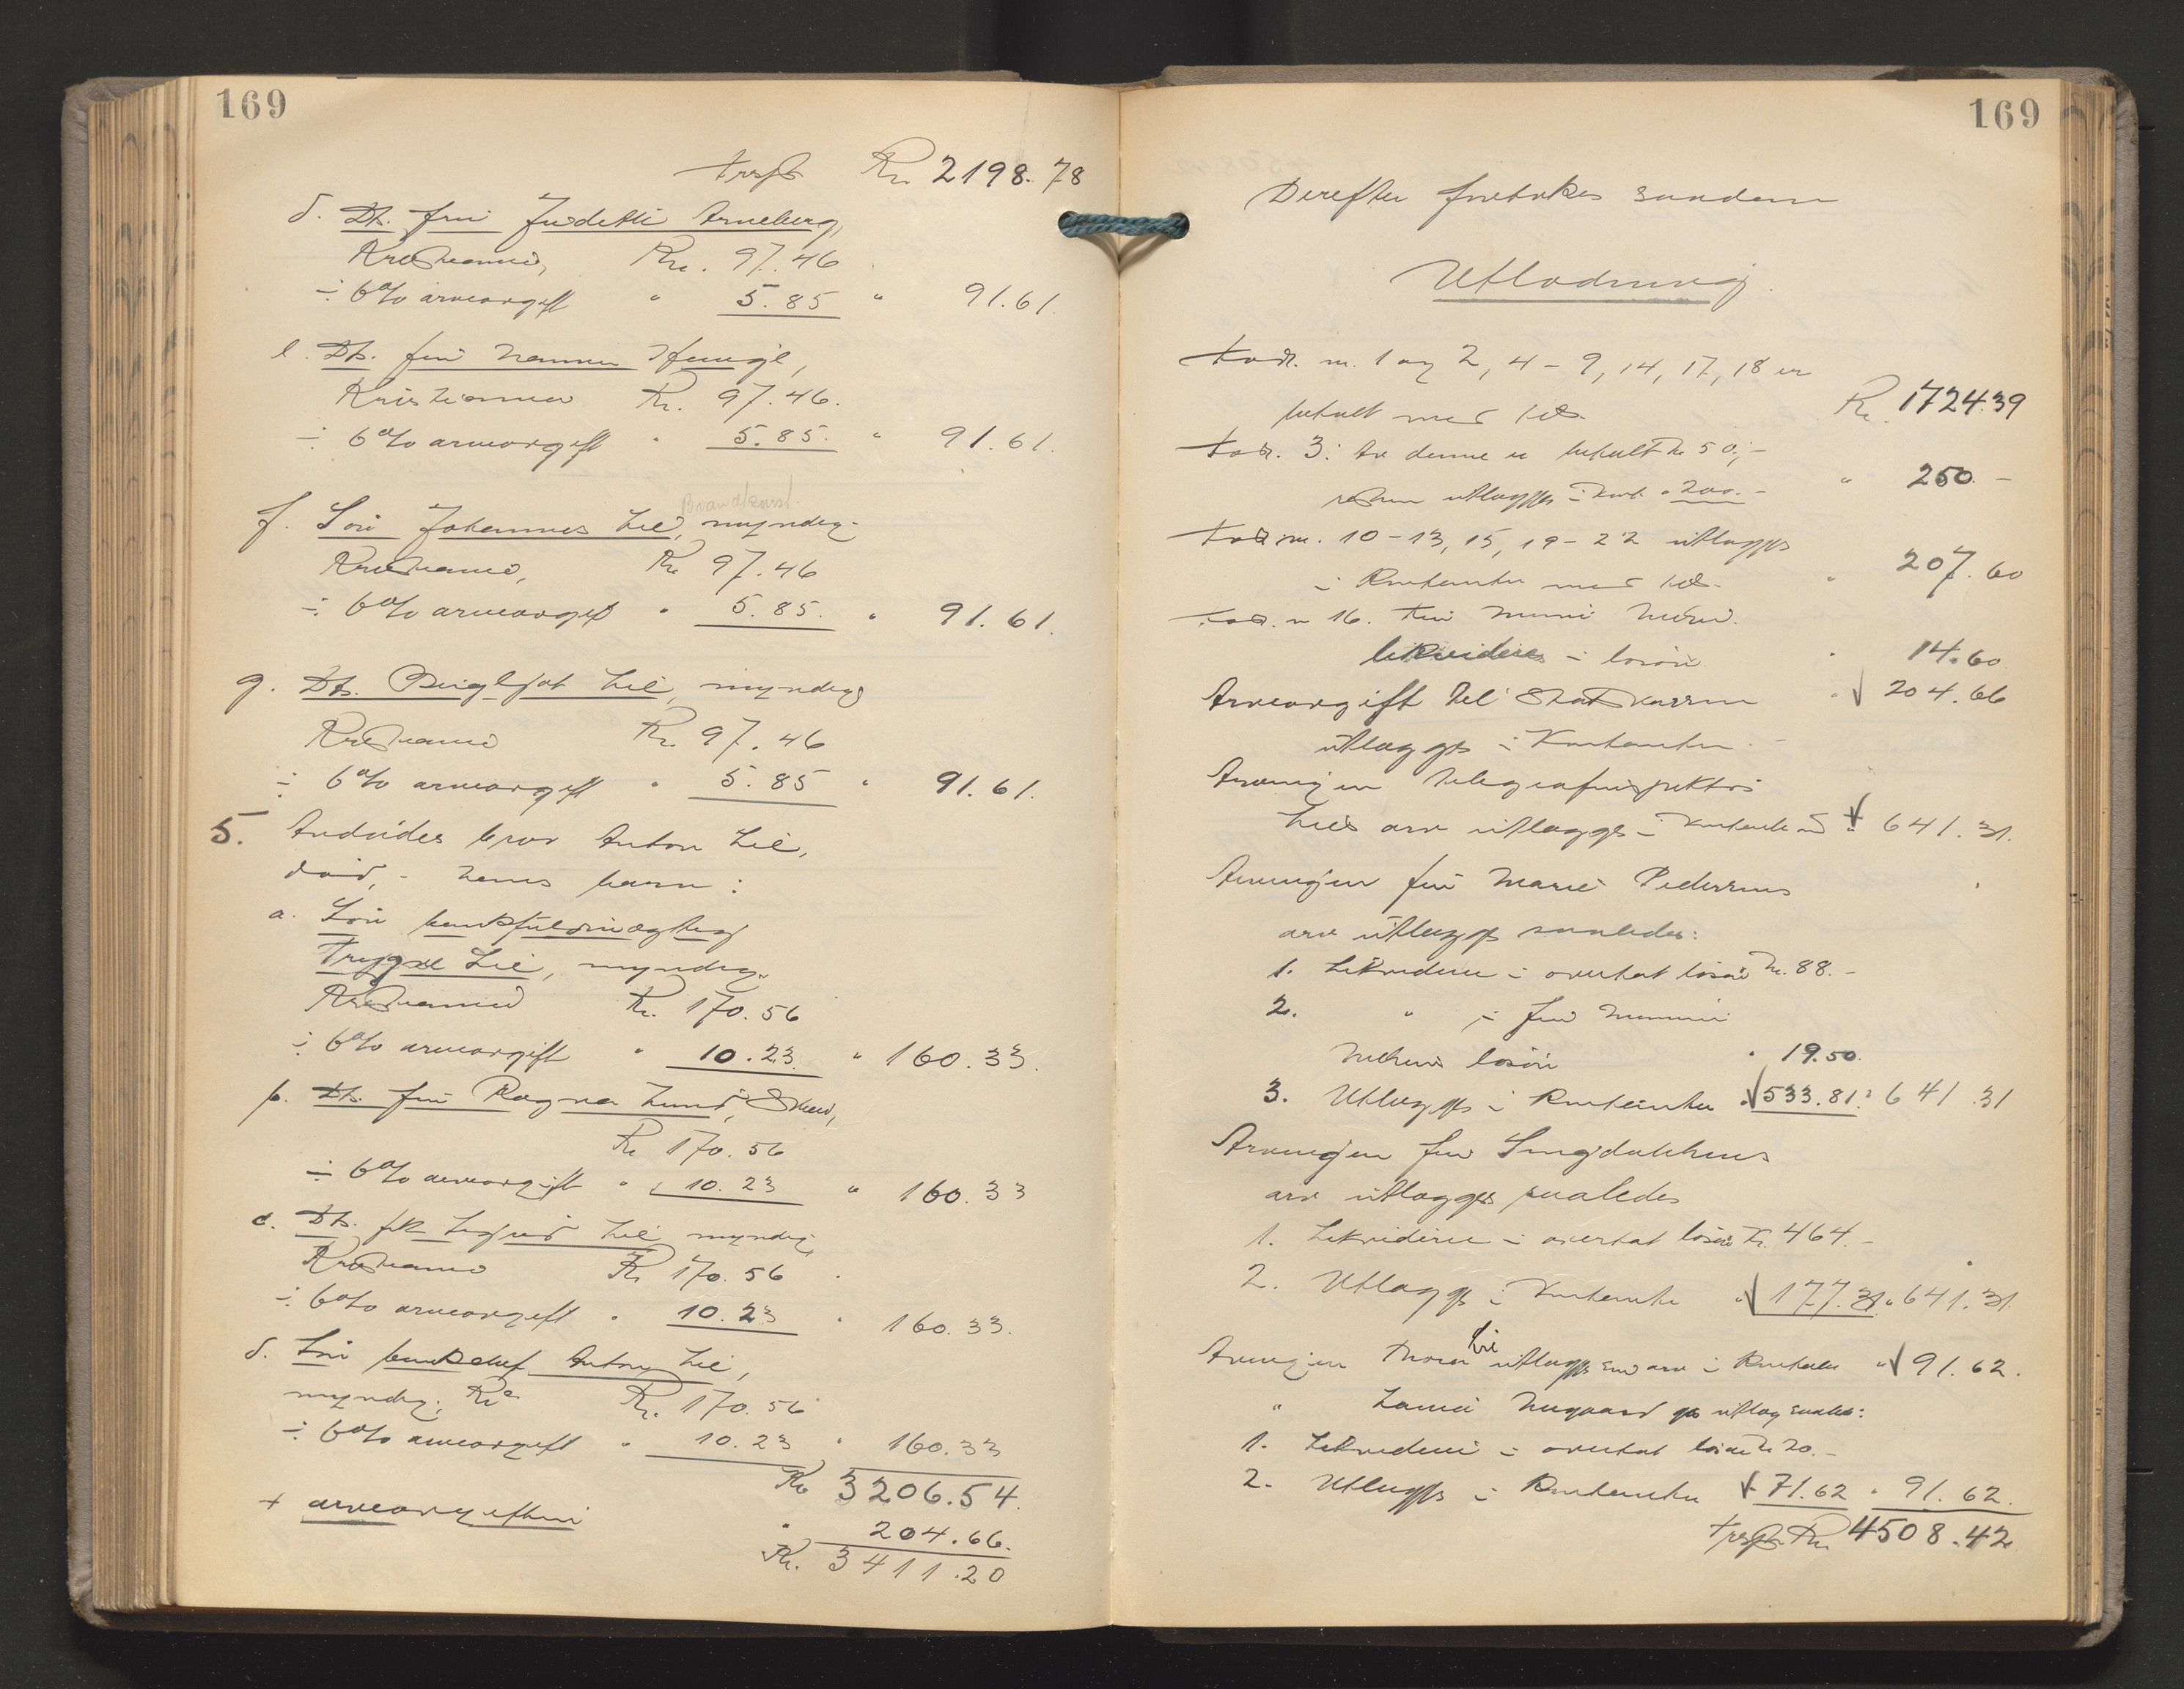 169
Trspt Kr. 2198.78
d. Dt. fru Arneberg,
Kristiania, Kr. 97.46
÷ 6% arveavgift " 5.85 " 91.61.
e. Dt. fru Hanna
Kristiania Kr. 97.46.
÷ 6% arveavgift " 5.85. " 91.61.
Brandkonst.
f. Søn Johannes Lie, myndig
Kristiania, Kr. 97.46
÷ 6% arveavgift " 5.85. " 91.61.
g. Dt. Bergljot Lie, myndig
Kristiania Kr. 97.46
÷ 6% arveavgift " 5.85 " 91.61.
5. Avdødes bror Anton Lie,
død, - hans barn:
a. Søn bankfuldmægtig
Trygve Lie, myndig,
Kristiania Kr. 170.56
÷ 6% arveavgift " 10.23. " 160.33.
b. Dt. fru Ragna Lund, Skien,
Kr. 170.56
÷ 6% arveavgift " 10.23 " 160.33
c. Dt. frk Lie, myndig,
Kristiania Kr. 170.56
÷ 6% arveavgift " 10.23 " 160.33.
d. Søn bankchef Antony Lie,
myndig, Kra Kr. 170.56
÷ 6% arveavgift " 10.23 " 160.33
Kr. 3206.54.
+ arveavgiften " 204.66.
Kr. 3411.20
169
Derefter foretokes saadan
Utlodning.
Fodr. nr. 1 og 2, 4 - 9, 14, 17, 18 er
betalt med tils. Kr. 1724.39
Fodr. 3: Av denne er betalt Kr. 50,-
resten utlægges i kont. " 200.- " 250.-
Fodr nr. 10-13, 15, 19-22 utlægges
i kontanter med tils. " 207.60
Fodr. nr 16. Fru
likvideres i løsøre " 14.60
Arveavgift til Statskassen " 204.66
utlægges i kontanter.
Arvingen telegrafinspektør
Lies arv utlægges i kontanter med " 641.31.
Arvingen fru Marie Pedersens
arv utlægges saaledes:
1. Likvideres i overtat løsøre Kr. 88.-
2. " i fru
løsøre " 19.50.
3. Utlægges i kontanter " 533.81. " 641.31
Arvingen fru
arv utlægges saaledes
1. Likvideres i overtat løsøre Kr. 464.-
2. Utlægges i kontanter " 177.31. " 641.31.
Arvingen Thora Lie utlægges sin arv i kontanter " 91.62.
" Nygaard gis utlæg saaledes:
1. Likvideres i overtat løsøre Kr 20.-
2. Utlægges i kontanter " 71.62 " 91.62.
Trspt. Kr. 4508.42